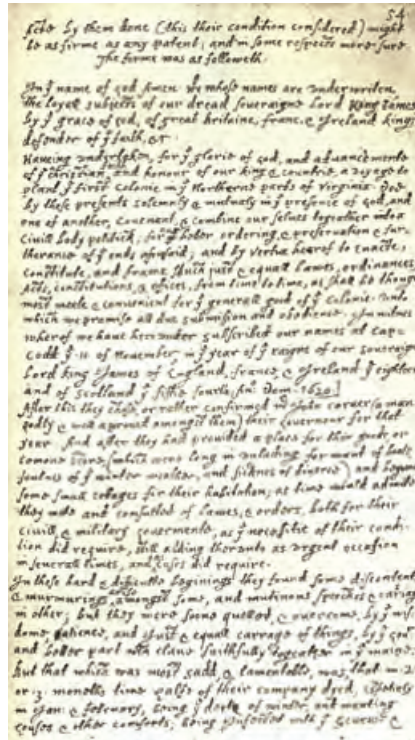 54
facte by them done (this their condition considered) might
be as firme as any patent; and in some respects more sure.
The forme was as followeth.
In yͤ name of god Amen. We whose names are underwriten,
the loyall subjects of our dread soveraigne Lord King James
by yͤ grace of god, of great britaine, franc, & Ireland king,
defender of yͤ faith, &c.
Haveing undertaken, for yͤ glorie of god, and advancemente
of yͤ christian faith and honour of our king & countrie, a voyage to
plant yͤ first colonie in yͤ Northerne parts of Virginia. Doe
by these presents solemnly & mutualy in yͤ presence of god, and
one of another, covenant, & combine our selves togeather into a
civill body politick; for our better ordering, & preservation & fur-
therance of yͤ ends aforesaid; and by vertue hearof to enacte,
constitute, and frame such just & equall Lawes, ordinances,
Acts, constitutions, & offices, from time to time, as shall be thought
most meete & convenient for yͤ generall good of yͤ colonie: unto
which we promise all due submission and obedience. In witnes
wherof we have hereunder subscribed our names at Cap-
Codd yͤ ·11· of November, in yͤ year of yͤ raigne of our soveraigne
Lord king James of England, france, & Ireland yͤ eighteen
and of Scotland yͤ fiftie fourth. Ano: Dom. 1620.]
After this they chose, or rather confirmed mr John Carver (a man
godly & well approved amongst them) their Governour for that
year. And after they had provided a place for their goods, or
comone store, (which were long in unlading for want of boats,
foulnes of yͤ winter weather, and sicknes of diverce) and begune
some small cottages for their habitation; as time would admitte
they mette and consulted of lawes, & orders, both for their
civill, & military Govermente, as yͤ necessitie of their condi-
tion did require, still adding therunto as urgent occasion
in severall times, and as cases did require.
In these hard & difficulte beginings they found some discontents
& murmurings amongst some, and mutinous speeches & cariags
in other; but they were soone quelled, & overcome, by yͤ wis-
dome, patience, and just & equall carrage of things, by yͤ Govr
and better part wch clave faithfully togeather in yͤ maine.
But that which was most sadd, & lamentable, was, that in ·2·
or ·3· moneths time halfe of their company dyed, espetialy
in Jan: & february, being yͤ depth of winter, and wanting
houses & other comforts; being Infected with yͤ scurvie &